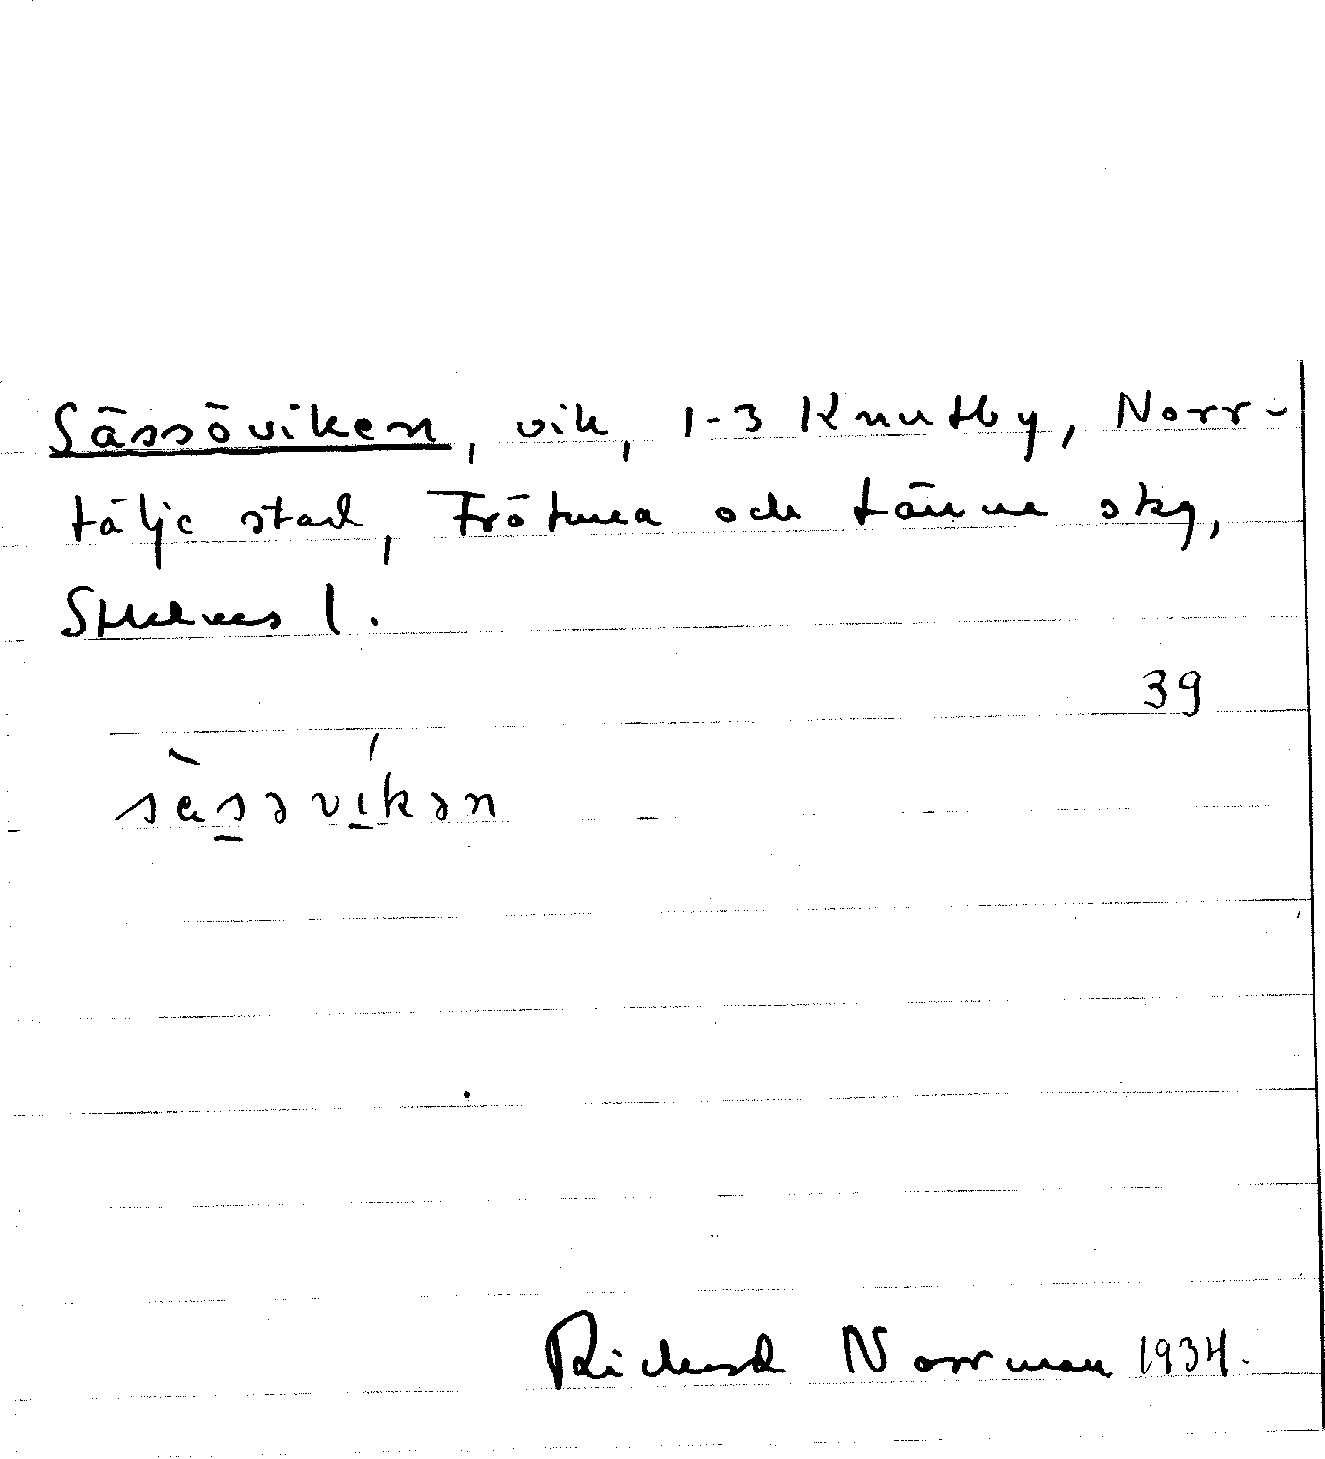 Sässöviken, vik, 1-3 Knutby, Norr-
tälje stad, Frötuna och Länna skg,
Sthlms l.
39
sèsəvíkən
Richard Norrman 1934.